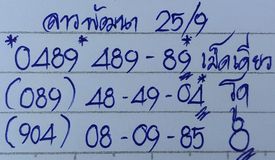 ลาวพัฒนา 25/9
*0489* 489 - 89* เม็ดเดี่ยว
(089) 48 - 49 - 04* โต
(904) 08 - 09 - 85